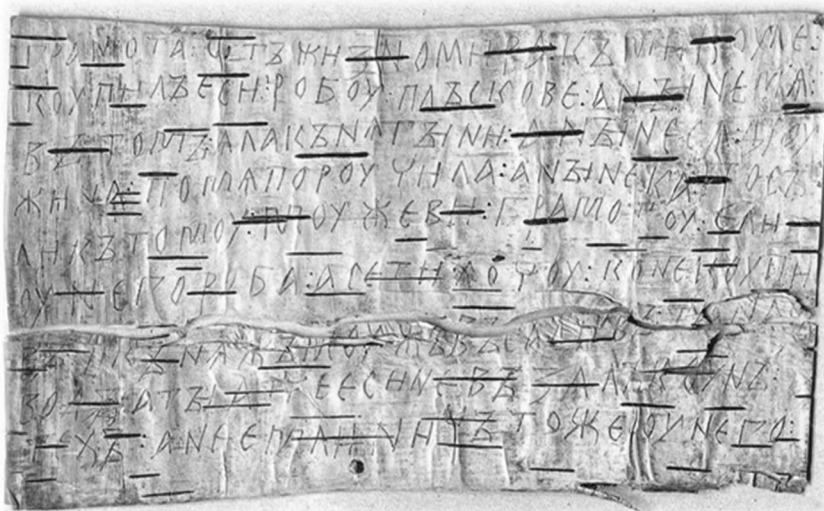 ГРАМОТА : ѠТЪ ЖИЗНОМИРА : КЪ МИКОУЛЕ :
КОУПИЛЪ ЕСИ : РОБОУ : ПЛЪСКОВЕ : А НЫНЕ МѦ :
ВЪ ТОМЪ : ѦЛА КЪНѦГЫНИ : А НЫНЕ СѦ : ДРОУ
ЖИНА : ПО МѦ ПОРОУЧИЛА : А НЫНЕ КА : ПОСЪ
ЛИ КЪ ТОМОУ : МОУЖЕВИ : ГРАМОТОУ : ЕЛИ
ОУ НЕГО РОБА : А СЕ ТИ ХОЧОУ : КОНЕ КОУПИ
ВЪ : И КЪНѦЖЪ МОУЖЪ ВЪСА ТА НА СЪ
ВОДЫ : А ТЫ АТЧЕ ЕСИ НЕ ВЪЗАЛЪ КОУНЪ :
ТЕХЪ : А НЕ ЕМЛИ : НИЧЪТО ЖЕ ОУ НЕГО :